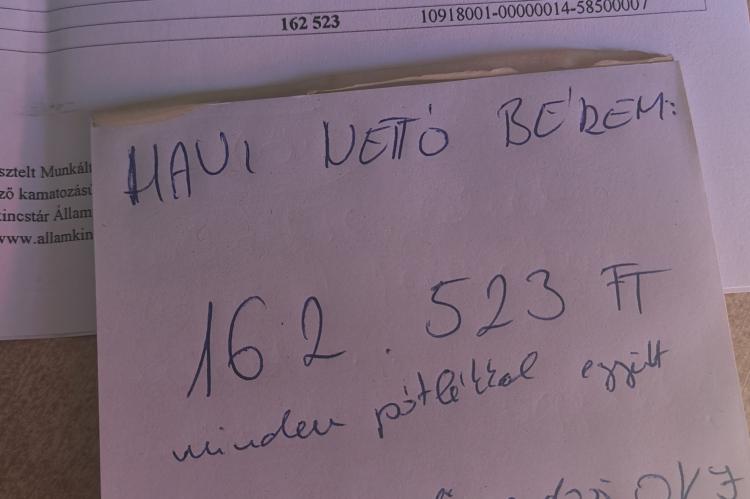 162 523 10918001-00000014-58500007
sztelt Munkált
ző kamatozású
kincstár Állam
www.allamkin
HAVI NETTÓ BÉREM:
162.523 FT
minden pótlékkal együtt
OKJ